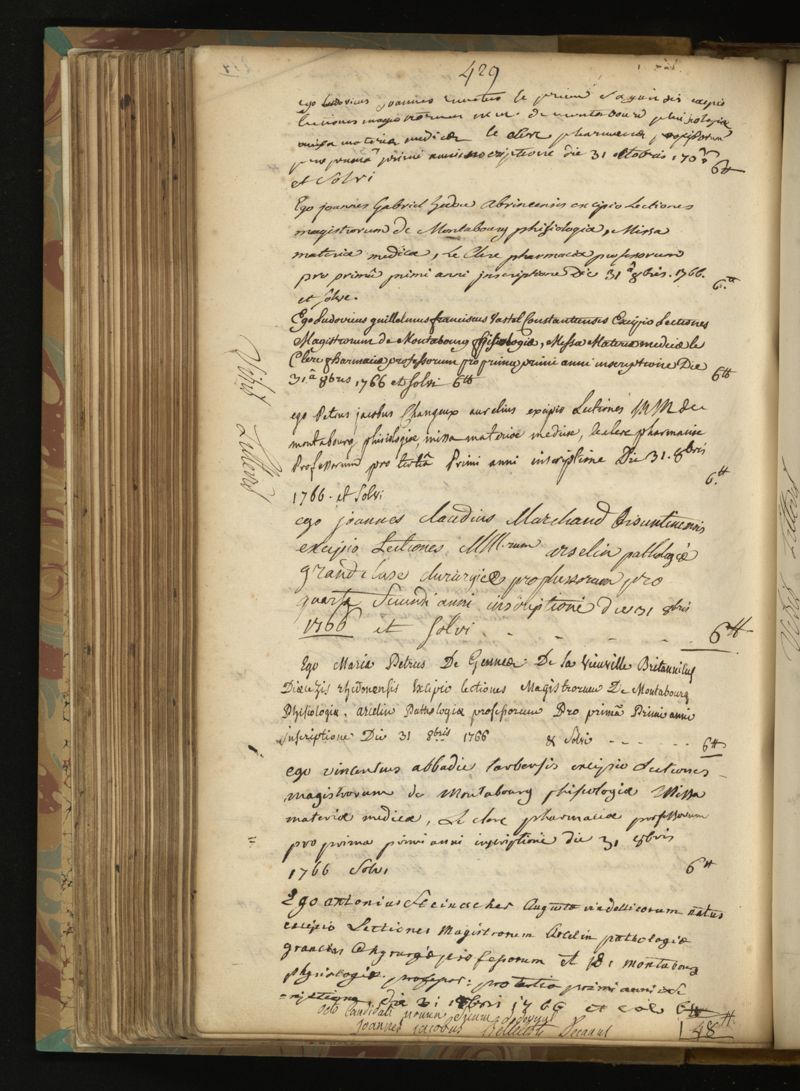 429
ego Ludovicus joannes le excipio
Lectiones magistrorum de montabourg phisiologiæ
missa materiæ medicæ le clerc pharmaciæ professorum
pro primâ primi anni inscriptione die 31 octobris 6tt
et solvi
Ego joannes Gabriel Abrincensis excipio Lectiones
magistrorum de Montabourg phisiologiæ, Missa
materiæ medicæ, Le Clerc pharmaciæ professorum
pro primâ primi anni inscriptione Die 31â 8bris. 1766. 6.tt
et solvi.
Ego Ludovicus guillelmus franciscus Vastel Constantiensis Excipio Lectiones
Magistrorum de Montabourg phisiologiæ, Missa Materiæ medicæ le
Clerc pharmaciæ professorum pro primâ primi anni inscriptione Die
31â 8bris 1766 et solvi 6tt 6tt
ego Petrus jacobus Changeux aurelius excipio Lectiones MM de
montabourg phisiologiæ, missa materiæ medicæ, leclerc pharmaciæ
Professorum pro tertiâ Primi anni inscriptione Die 31. 8bris
1766. et solvi 6.tt
ego joannes claudius Marchand bisuntinensis
excipio Lectiones MM.rum arselin pathologiæ
grandclase chirurgiæ professorum pro
quarta secundi anni inscriptione die 31 8bris
1766 et solvi . - - - - 6tt
Ego Maria Petrus De Gennes De la Vieuville Britannicus
Diœcezis rhedonensis Excipio lectiones Magistrorum De Montabourg
Phisiologiæ, arcelin Pathologiæ professorum Pro primâ Primi anni
inscriptione Die 31 8bris 1766 & Solvi - - - - - 6tt
ego vincentius abbadie tarbensis excipio Lectiones
magistrorum de Montabourg phisiologiæ Missa
materiæ medicæ, Le clerc pharmaciæ professorum
pro prima primi anni inscriptione die 31 8bris
1766 Solvi 6tt
Ego antonius Steinacher Augusta vindelicorum natus
excipio Lectiones Magistrorum Arcelin pathologiæ
granclas Chyrurgiæ professorum et De montabourg
physiologiæ profess: pro tertia primi anni
inscriptione, die 31 8bris 1766 et solvi 6tt
octo candidati
joannes jacobus Belleteste Decanus 48tt